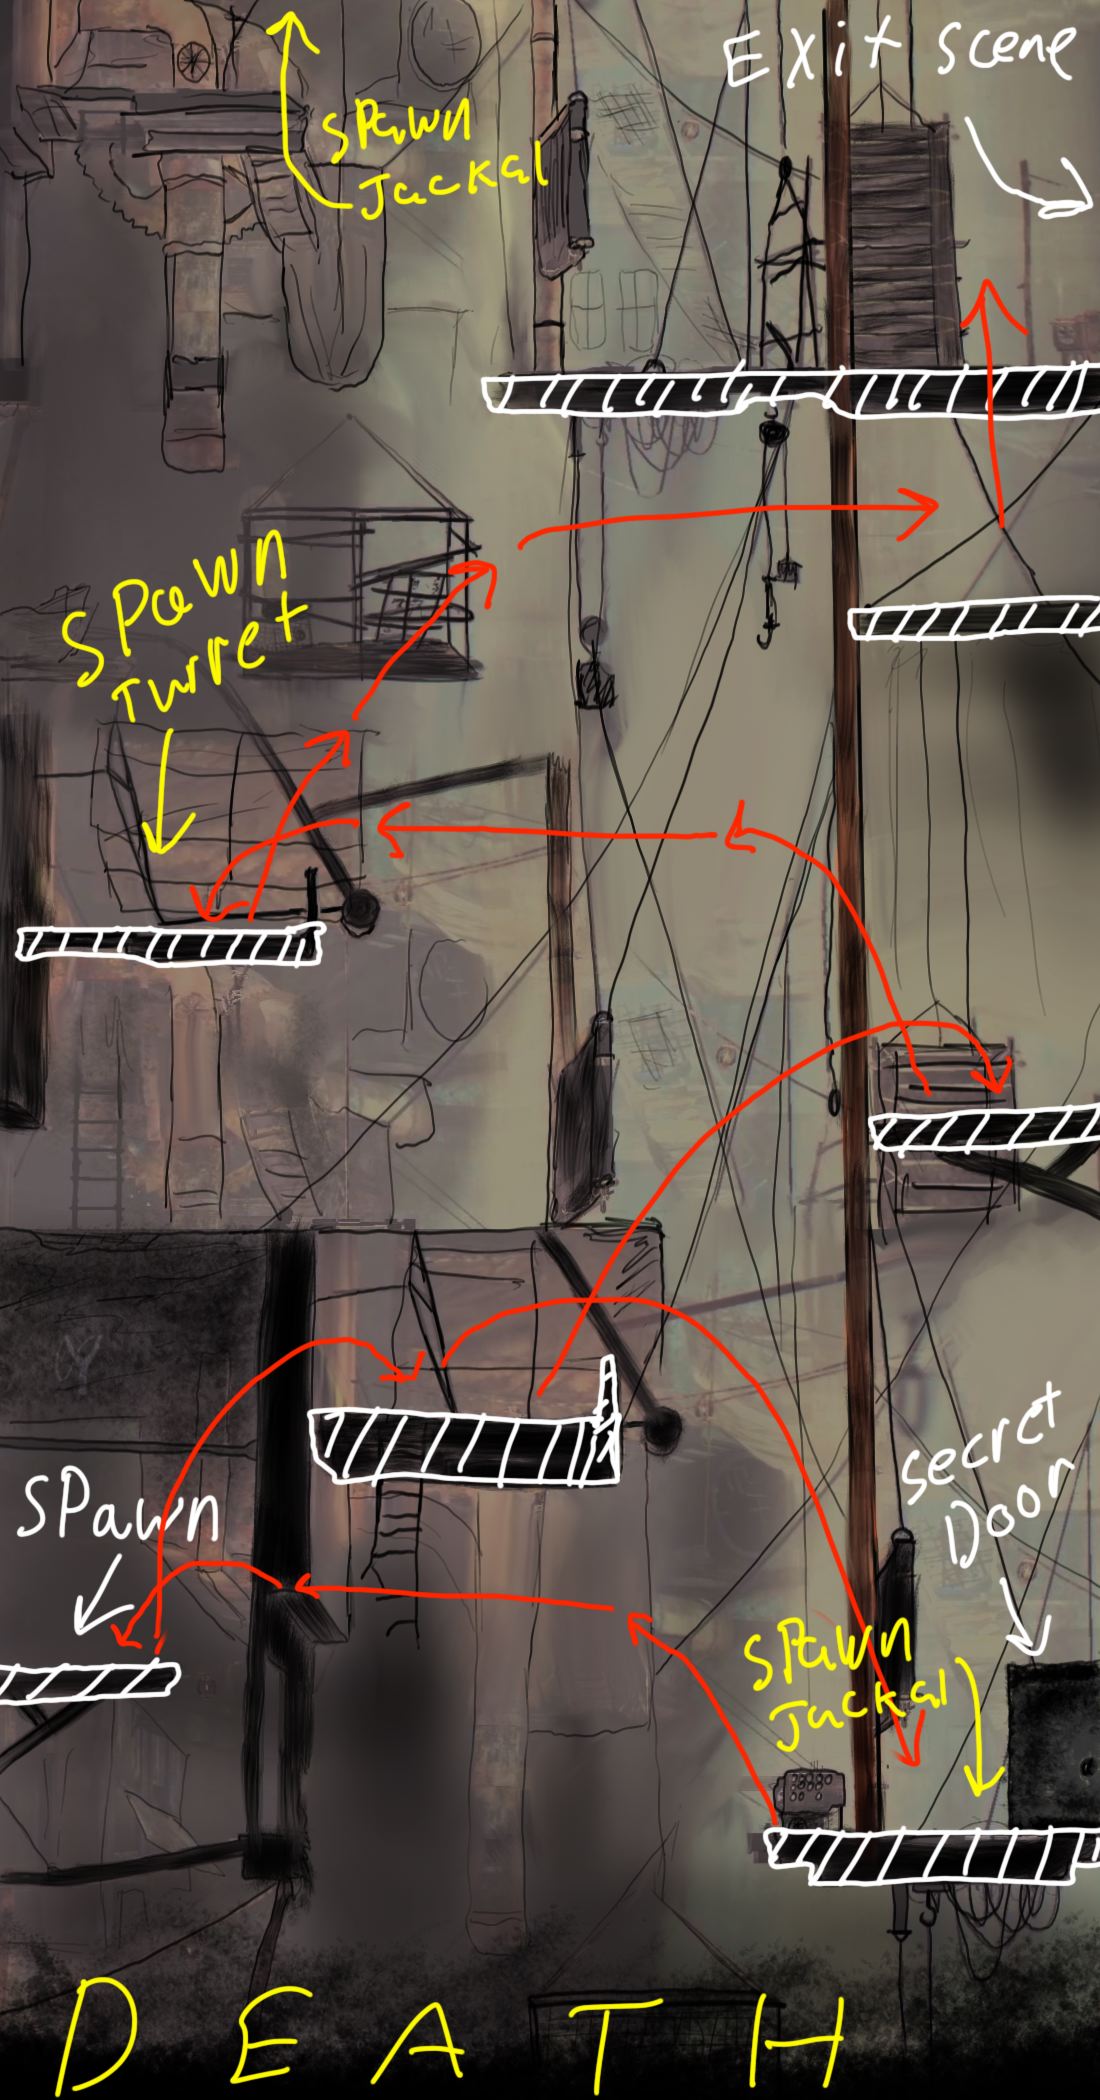 Exit scene
SPawn
Jackal
SPawn
Turret
secret
Door
SPawn
SPawn
Jackal
DEATH